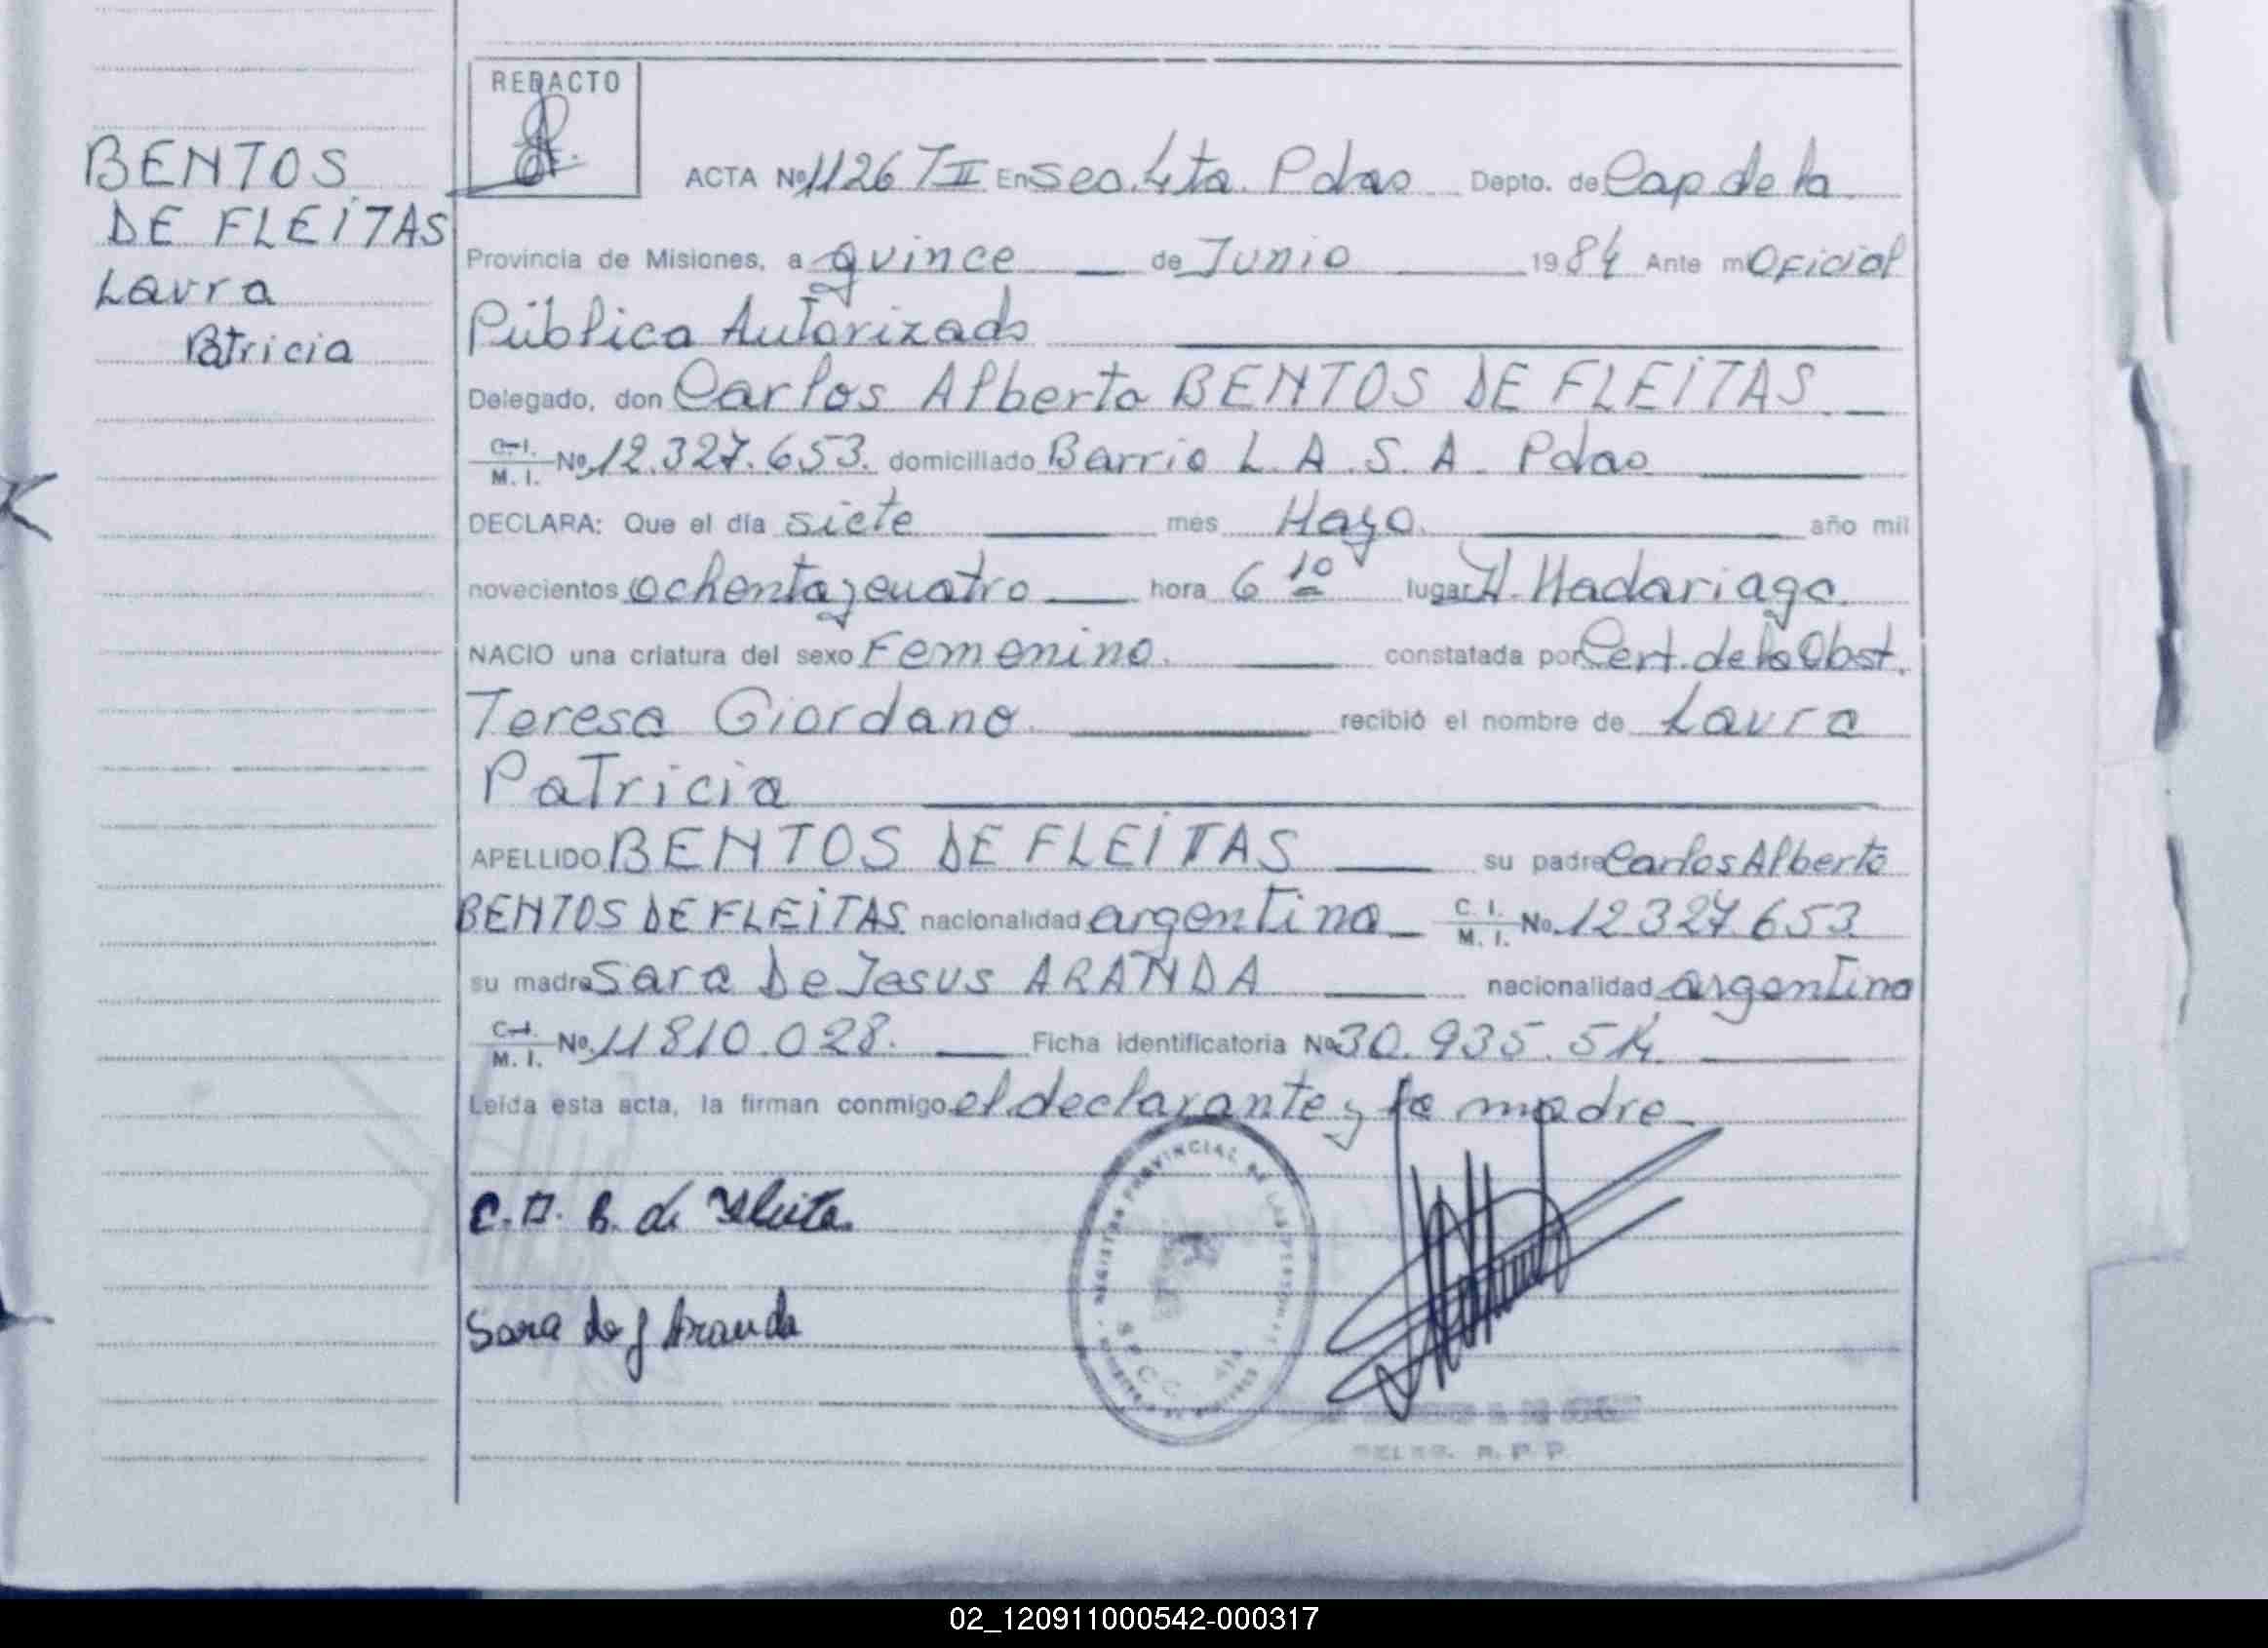 BENTOS
DE FLEITAS
Laura
Patricia
REDACTO
ACTA Nº 1126 TII En Sec. 4ta. Pdas Depto. de Cap de la
Provincia de Misiones, a quince de Junio 1984 Ante mi Oficial
Público Autorizado
Delegado, don Carlos Alberto BENTOS DE FLEITAS
C.I. M.I. Nº 12.327.653. domiciliado Barrio L.A.S.A. Pdas
DECLARA: Que el día siete mes Mayo. año mil
novecientos ochenta y cuatro hora 6 10 lugar H. Madariaga
NACIO una criatura del sexo Femenino. constatada por Cert. de la Obst.
Teresa Giordano recibió el nombre de Laura
Patricia
APELLIDO BENTOS DE FLEITAS su padre Carlos Alberto
BENTOS DE FLEITAS nacionalidad argentina C.I. M.I. Nº 12.327.653
su madre Sara De Jesus ARANDA nacionalidad argentina
C.I. M.I. Nº 11810.028. Ficha identificatoria Nº 30.935.514
Leída esta acta, la firman conmigo el declarante y la madre
C.A. B. de Fleitas
Sara de J Aranda
REGISTRO PROVINCIAL DE LAS PERSONAS
SECC. 4TA
DELEG. R.P.P.
02_120911000542-000317